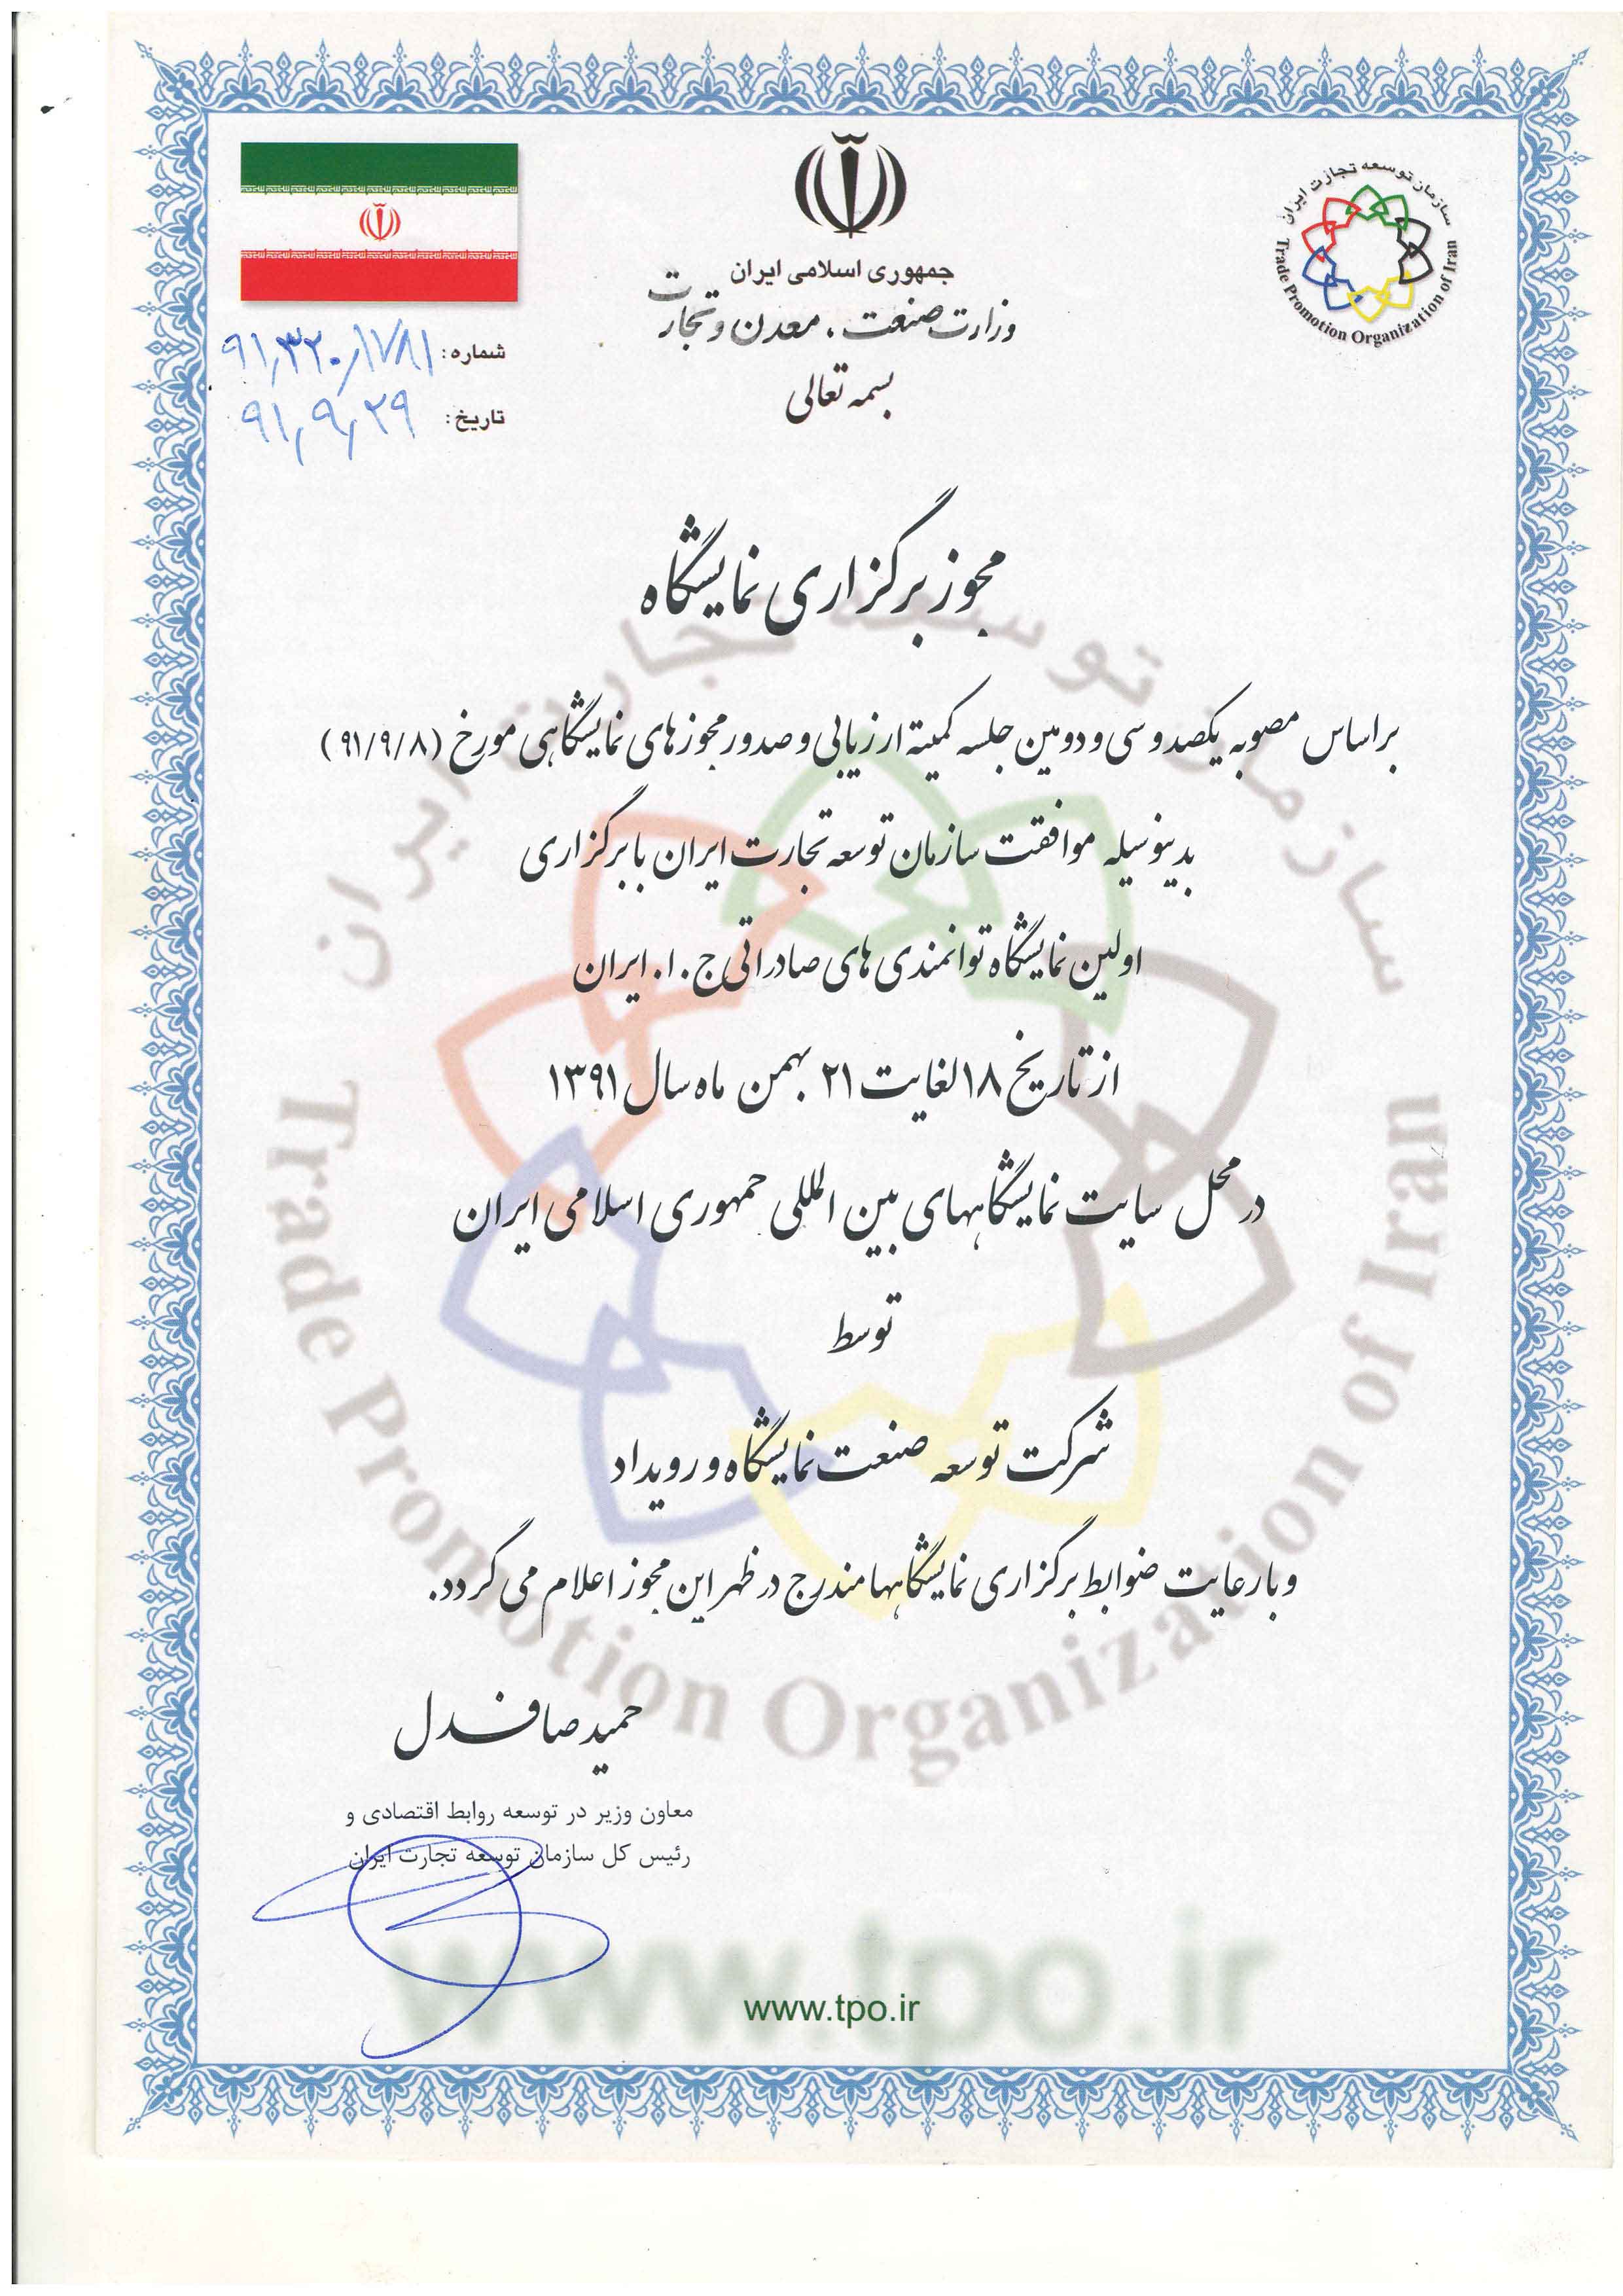 سازمان توسعه تجارت ایران
Trade Promotion Organization of Iran
جمهوری اسلامی ایران
وزارت صنعت، معدن و تجارت
بسمه تعالی
شماره: ۹۱٫۳۲۰٫۱۷۸۱
تاریخ: ۹۱٫۹٫۲۹
مجوز برگزاری نمایشگاه
براساس مصوبه یکصد و سی و دومین جلسه کمیته ارزیابی و صدور مجوزهای نمایشگاهی مورخ (۹۱/۹/۸)
بدینوسیله موافقت سازمان توسعه تجارت ایران با برگزاری
اولین نمایشگاه توانمندی های صادراتی ج.ا.ایران
از تاریخ ۱۸ لغایت ۲۱ بهمن ماه سال ۱۳۹۱
در محل سایت نمایشگاههای بین المللی جمهوری اسلامی ایران
توسط
شرکت توسعه صنعت نمایشگاه و رویداد
و با رعایت ضوابط برگزاری نمایشگاهها مندرج در ظهر این مجوز اعلام می گردد.
حمید صافدل
معاون وزیر در توسعه روابط اقتصادی و
رئیس کل سازمان توسعه تجارت ایران
سازمان توسعه تجارت ایران
Trade Promotion Organization of Iran
www.tpo.ir
www.tpo.ir